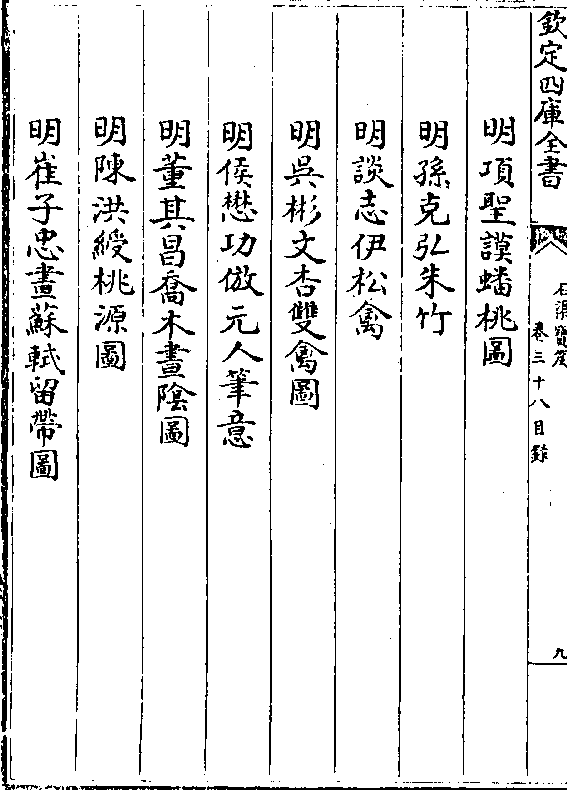 欽定四庫全書
石渠寶笈
卷三十八目録
九
明項聖謨蟠桃圖
明孫克弘朱竹
明談志伊松禽
明吳彬文杏雙禽圖
明侯懋功倣元人筆意
明董其昌喬木晝陰圖
明陳洪綬桃源圖
明崔子忠畫蘇軾留帶圖